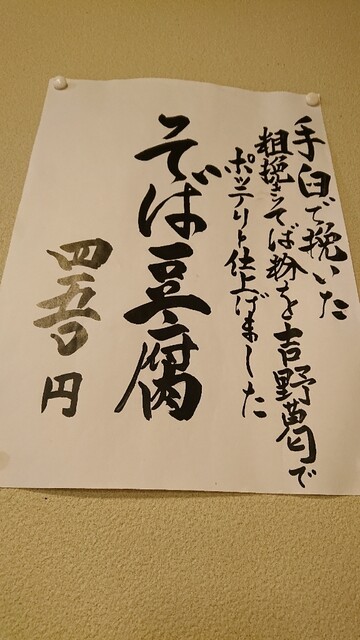 手臼で挽いた
粗挽きそば粉を吉野葛で
ポッテリト仕上げました
そば豆腐
四五〇円